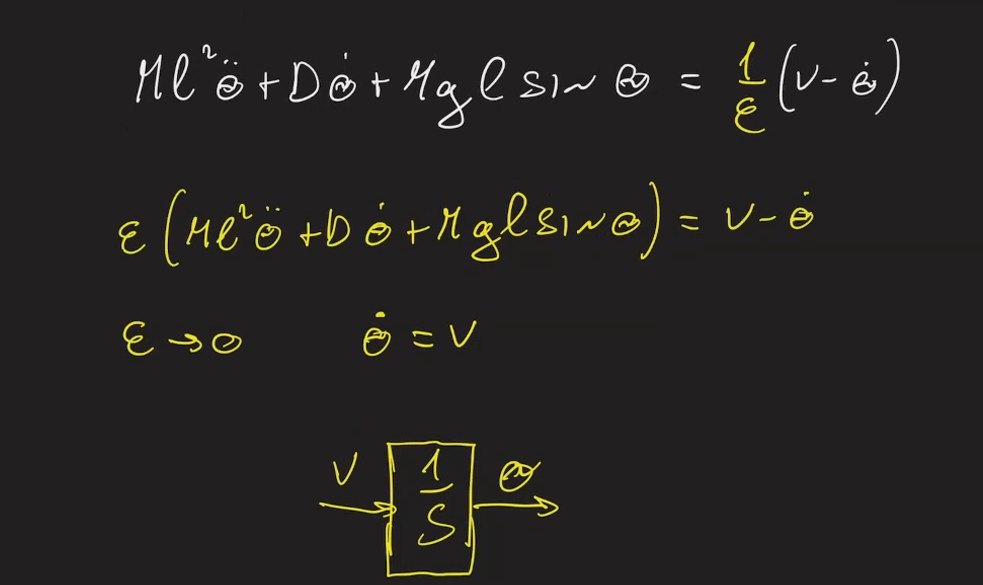 Ml²θ̈ + Dθ̇ + Mgl sin θ = 1/ε (v - θ̇)
ε (Ml²θ̈ + Dθ̇ + Mgl sin θ) = v - θ̇
ε → 0 θ̇ = v
v 1/s θ